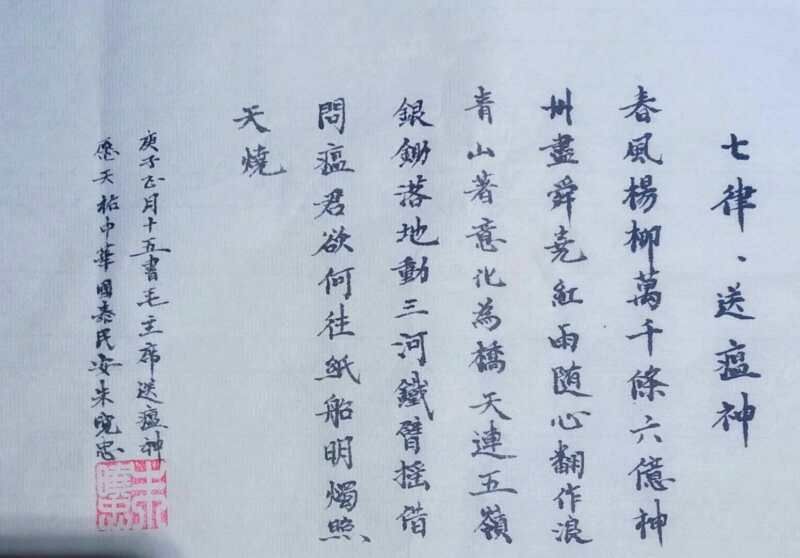 七律、送瘟神
春風楊柳萬千條六億神
州盡舜堯紅雨随心翻作浪
青山著意化為橋天連五嶺
銀鋤落地動三河鐵臂摇借
問瘟君欲何往紙船明燭照
天燒
庚子正月十五書毛主席送瘟神
愿天祐中華國泰民安朱忠